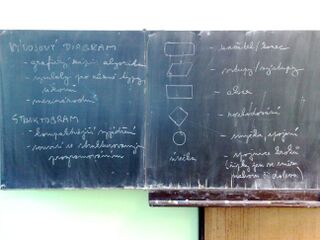 VÝVOJOVÝ DIAGRAM
- grafický zápis algoritmu
- symboly pro různé typy
úkonů
- mezinárodní
STRUKTOGRAM
- kompaktnější vyjádření
- souvisí se strukturovaným
programováním
- začátek / konec
- vstupy / výstupy
- akce
- rozhodování
- spojka spojení
- spojnice kroků
(šipky jen ve směru
nahoru či doleva)